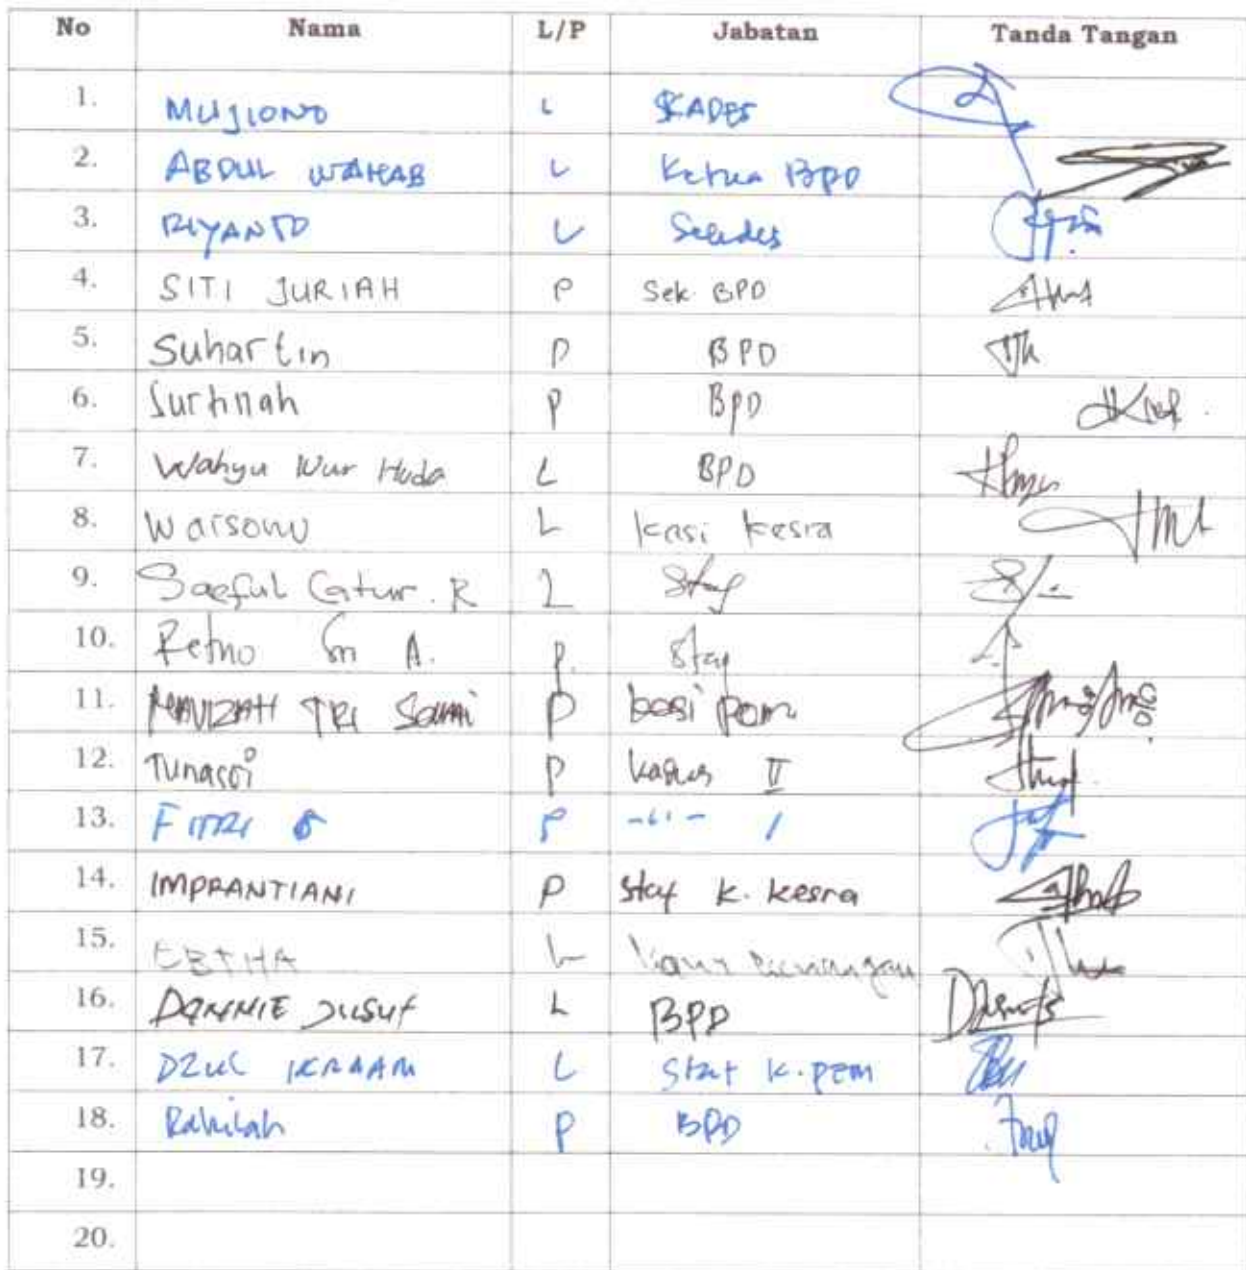 No Nama L/P Jabatan Tanda Tangan
1. MUJIONO L KADES
2. ABDUL WAHAB L Ketua BPD
3. RIYANTO L Sekdes
4. SITI JURIAH P Sek BPD
5. Suhartin P BPD
6. Surtinah P BPD
7. Wahyu Nur Huda L BPD
8. Warsono L kasi kesra
9. Saeful Catur. R L Staf
10. Retno Sri A. P. Staf
11. TRI P kasi pem
12. Tunasri P kasus II
13. FITRI S P -"- I
14. IMPRANTIANI P staf K. kesra
15. L kaur
16. DANNIE JUSUF L BPD
17. DZUL IKRAAM L Staf K.PEM
18. Rahilah P BPD
19.
20.